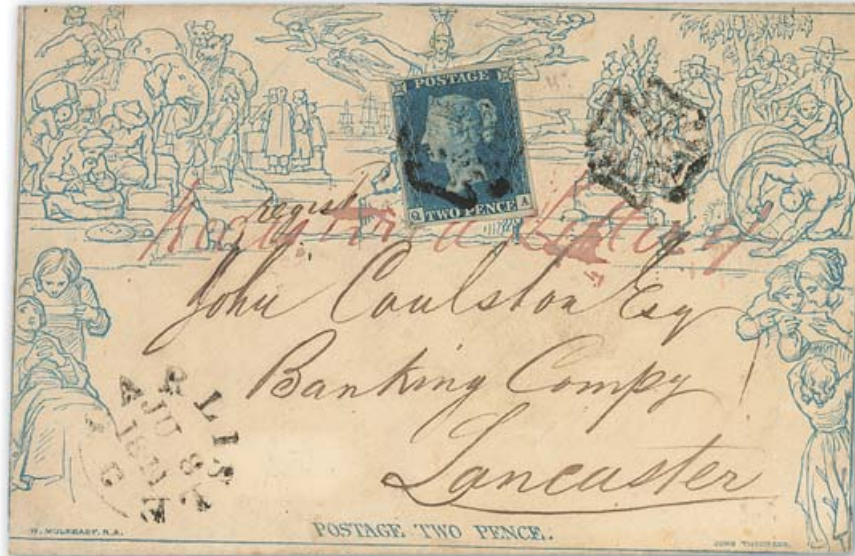 POSTAGE
Q TWO PENCE A
regist
Registered Letter
John Coulston Esq
Banking Compy
Lancaster
W. MULREADY, R.A.
POSTAGE TWO PENCE.
JOHN THOMPSON.